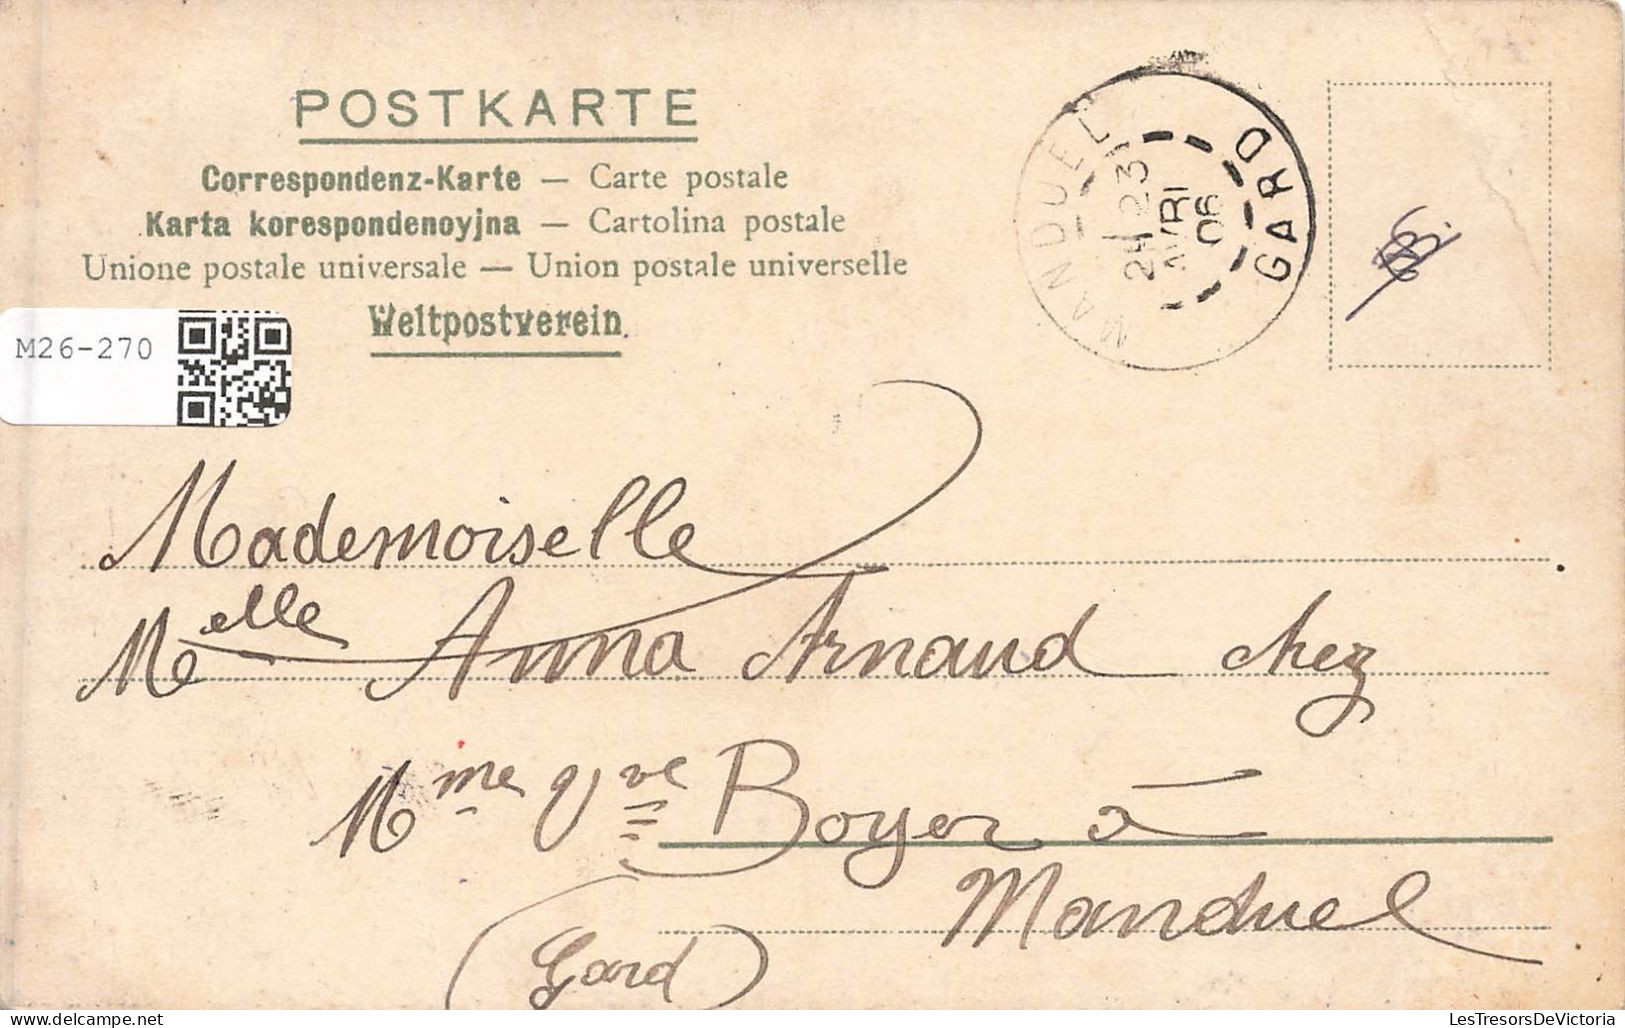 POSTKARTE
Correspondenz-Karte — Carte postale
Karta korespondenoyjna — Cartolina postale
Unione postale universale — Union postale universelle
Weltpostverein.
MANDUEL
24 23
AVRI
06
GARD
M26-270
Mademoiselle
Melle Anna Arnaud chez
Mme Vve Boyer à
Manduel
(Gard)
LesTresorsDeVictoria
delcampe.net